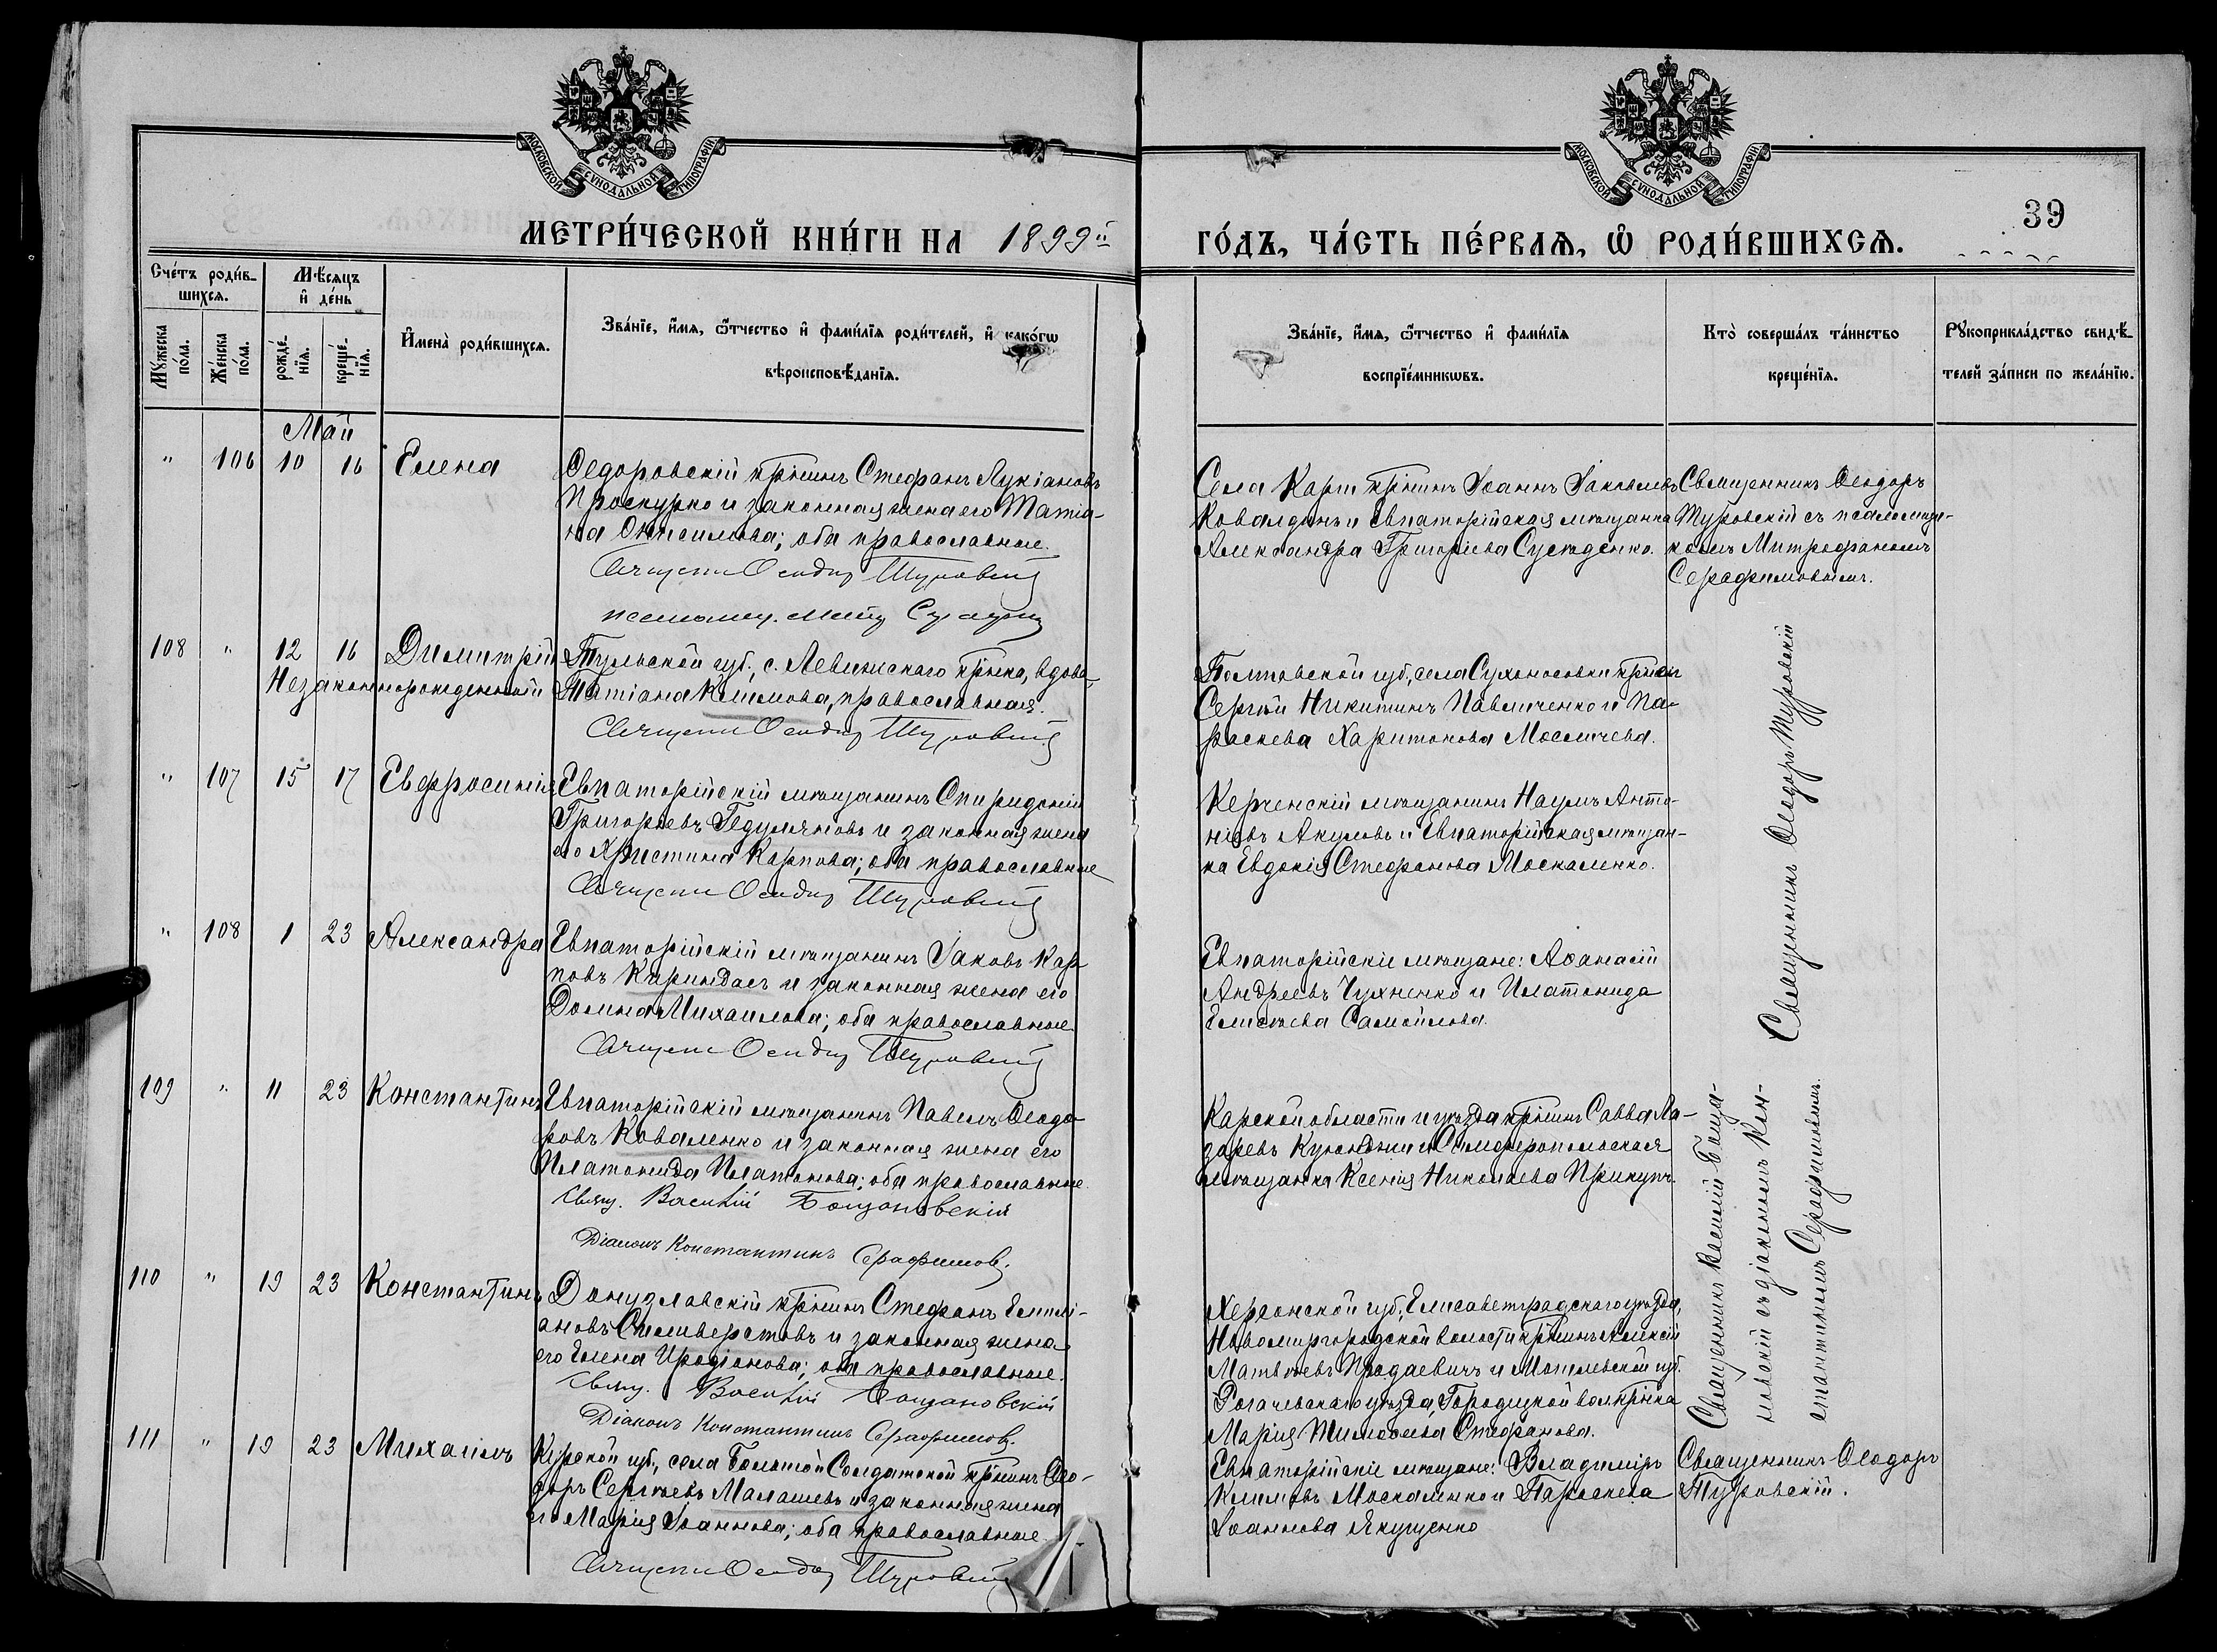 МОСКОВСКОЙ СУНОДАЛЬНОЙ ТИПОГРАФІИ
МОСКОВСКОЙ СУНОДАЛЬНОЙ ТИПОГРАФІИ
39
МЕТРИ́ЧЕСКОЙ КНИ́ГИ НА 1899й
ГО́ДЪ, ЧА́СТЬ ПЕ́РВАЯ, Ѡ РОДИ́ВШИХСЯ.
Сче́тъ роди́в-
шихся.
Мѣ́сяцъ
и де́нь
Мꙋ́жеска по́ла.
Же́нска по́ла.
рожде́-нїя.
креще́-нїя.
Имена̀ роди́вшихся.
Зва́нїе, и́мя, ѻ́тчество и фами́лїя роди́телей, и како́гѡ
вѣроисповѣ́данїя.
Зва́нїе, и́мя, ѻ́тчество и фами́лїя
воспрїе́мникѡвъ.
Кто̀ соверша́лъ та́инство
креще́нїя.
Рꙋкоприкла́дство свидѣ́-
телей за́писи по жела́нїю.
Май
" 106 10 16 Елена
Ѳедоровскій крінинъ Стефанъ Лукіановъ
Проскурко и законная жена его Татіа-
на Онисимова; оба православные.
Села Карт крінинъ Іоаннъ
Ковалдинъ и Евпаторійская мѣщанка
Александра Григоріева Сужденко.
Священникъ Ѳеодоръ
Туровскій съ псаломщи-
комъ Митрофаномъ
Серафимовымъ.
Священ Ѳеодор Туровскій
псаломщ. Митр Серафим
108 " 12 16 Димитрій
Незаконнорожденный
Тульской губ., с. крінка, вдова,
Татіана Климова, православная.
Священ Ѳеодор Туровскій
Полтавской губ., села Сухоносовки кріне
Сергѣй Никитинъ Павличенко и Па-
раскева Харитонова
" 107 15 17 Евфросинія
Евпаторійскій мѣщанинъ Спиридоній
Григорьевъ Гедуляновъ и законная жена
его Христина Карпова; оба православные
Священ Ѳеодор Туровскій
Керченскій мѣщанинъ Наумъ Анто-
ніевъ Акуловъ и Евпаторійская мѣщан-
ка Евдокія Стефанова Москаленко.
Священникъ Ѳеодоръ Туровскій
" 108 1 23 Александра
Евпаторійскій мѣщанинъ Іаковъ Кар-
повъ Кариндасъ и законная жена его
Домна Михаилова; оба православные
Священ Ѳеодор Туровскій
Евпаторійскіе мѣщане: Аѳанасій
Андреевъ Чухненко и Платонида
Елисѣева Самойлова.
109 " 11 23 Константинъ
Евпаторійскій мѣщанинъ Павелъ Ѳеодо-
ровъ Коваленко и законная жена его
Платонида Платонова; оба православные
Свящ. Василій Бощановскій
Діаконъ Константинъ Серафимовъ.
Карской области и уѣзда крінинъ Савва Ла-
заревъ и Симферопольская
мѣщанка Ксенія Николаева Прикупъ.
Священникъ Василій Боща-
новскій съ діакономъ Кон-
стантиномъ Серафимовымъ.
110 " 19 23 Константинъ
Донузлавскій крінинъ Стефанъ Емилі-
ановъ Сильверстовъ и законная жена
его Елена Иродіонова; оба православные.
Свящ. Василій Бощановскій
Діаконъ Константинъ Серафимовъ.
Херсонской губ., Елисаветградскаго уѣзда,
Новомиргородской волости крінинъ Алексій
Матвѣевъ Продаевичъ и Могилевской губ.
Рогачевскаго уѣзда, Городецкой вол. крінка
Марія Тимоѳеева Стефанова.
111 " 19 23 Михаилъ
Курской губ., села Большой Солдатской крінинъ Ѳео-
доръ Сергѣевъ Малашевъ и законная жена
его Марія Іоаннова; оба православные.
Священ Ѳеодор Туровскій
Евпаторійскіе мѣщане: Владиміръ
Климовъ Москаленко и Параскева
Іоаннова Якущенко
Священникъ Ѳеодоръ
Туровскій.